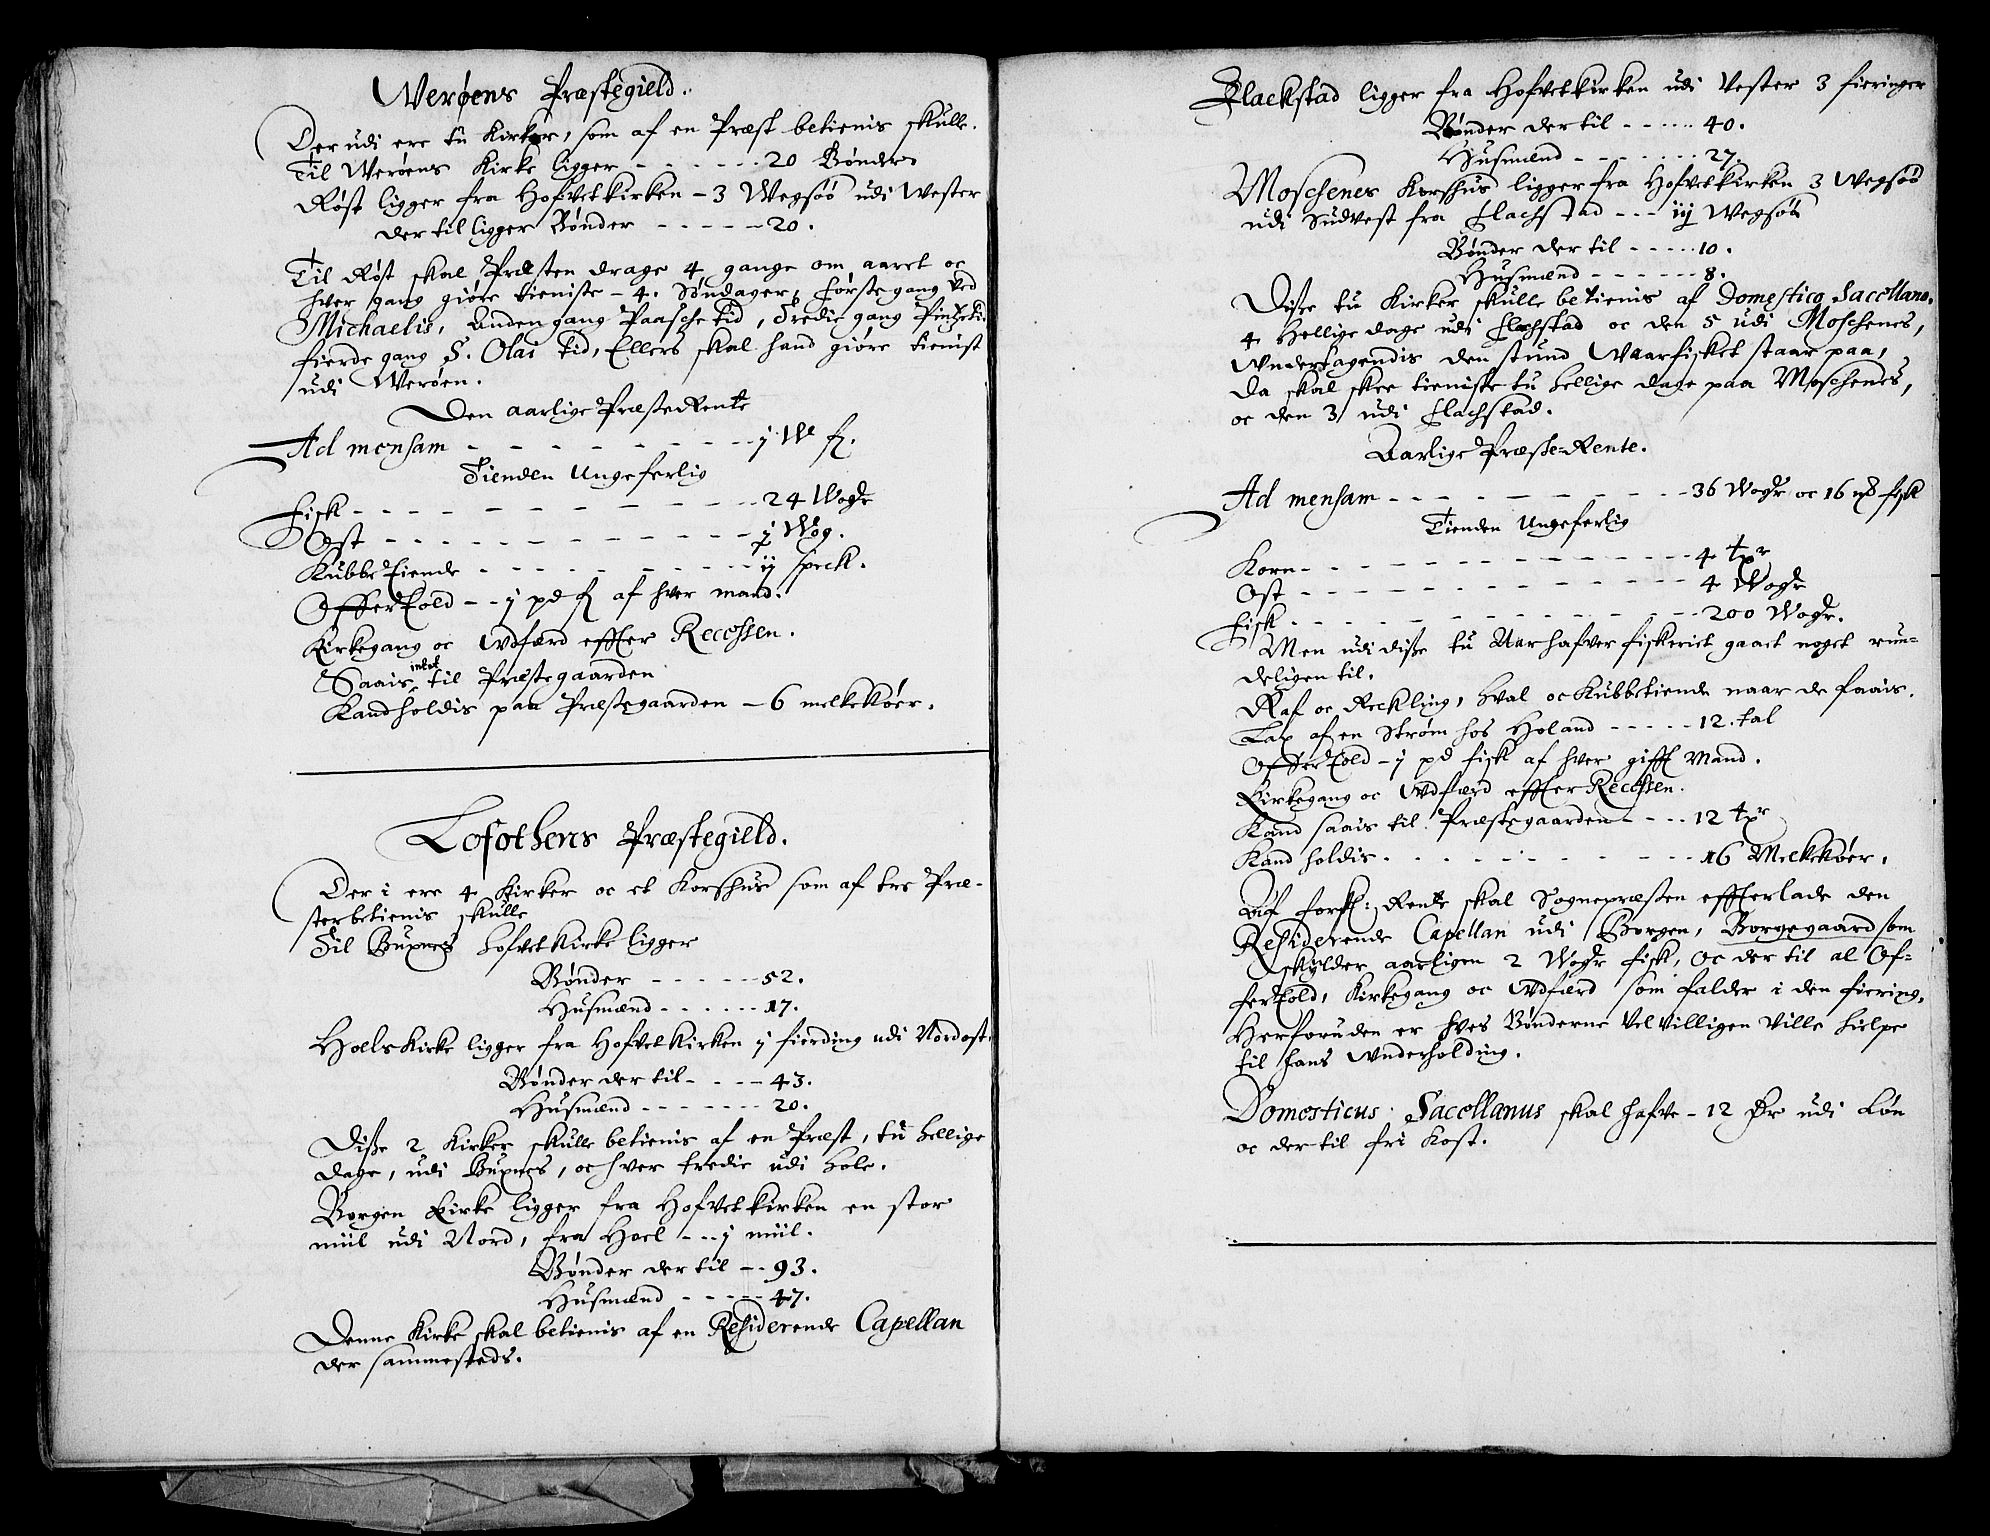 Werøens Præstegield.
Der udi ere tu Kirker, som af en Præst betienis skulle.
Til Werøens Kirke ligger - - - - - - 20 Bønder
Røst ligger fra Hofvetkirken - 3 Wegsøø udi Wester
der til ligger Bønder - - - - - 20.
Til Røst skal Præsten drage 4 gange om aaret oc
hver gang giøre tieniste - 4. Søndager, første gang ved
Michaelis, Anden gang Paasche tid, Tredie gang Pintzetid
fierde gang S. Olai tid, Ellers skal hand giøre tienist
udi Werøen.
Den aarlige Præste Rente
Ad mensam - - - - - - - - - - j W f.
Tienden Ungeferlig
Fisk - - - - - - - - - - - - 24 Wogr
Ost - - - - - - - - - - - - j Wog.
Kubbe Tiende - - - - - - - - - ij speck.
Offer Told - - j pd f af hver mand.
Kirkegang oc Udfærd effter Recessen.
Saais intet til Præstegaarden
Kand holdis paa Præstegaarden - 6 melkekøer.
Lofothens Præstegield.
Der i ere 4 Kirker oc et Korshus som af tre Præ-
ster betienis skulle
Til Buxnes Hofvetkirke ligger
Bønder - - - - - 52.
Husmænd - - - - - - 17.
Hoels Kirke ligger fra Hofvetkirken j fierding udi Nordost.
Bønder der til - - - - 43.
Husmænd - - - - - - - 20.
Disse 2 Kirker skulle betienis af en Præst, tu hellige
dage, udi Buxnes, oc hver tredie udi Hole.
Borgen Kirke ligger fra Hofvetkirken en stor
miil udi Nord, fra Hoel - - j miil.
Bønder der til - - 93.
Husmænd - - - - - 47.
Denne Kirke skal betienis af en Residerende Capellan
der sammesteds.
Flackstad ligger fra Hofvetkirken udi Vester 3 fieringer
Bønder der til - - - - - 40.
Husmænd - - - - - - 27.
Moschenes Korshus ligger fra Hofvetkirken 3 Wegsøø
udi Sudvest fra Flachstad - - - ij Wegsøø
Bønder der til - - - - - 10.
Husmænd - - - - - - 8.
Disse tu Kirker skulle betienis af Domestico Sacellano.
4 Hellige dage udi Flachstad oc den 5 udi Moschenes,
Undertagendis den stund Waarfisket staar paa,
da skal skee tieniste tu hellige dage paa Moschenes,
oc den 3 udi Flachstad.
Aarlige Præste-Rente.
Ad mensam - - - - - - - - 36 Wogr oc 16 fisk
Tienden Ungeferlig
Korn - - - - - - - - - - - - 4 tr
Ost - - - - - - - - - - - - - 4 Wogr
Fisk - - - - - - - - - - - - - 200 Wogr.
Men udi disse tu Aar hafver fiskeriet gaaet noget run-
deligen til.
Raf oc Reckling, Hval oc Kubbetiende naar de faais.
Lax af en Strøm hos Holand - - - - - 12. tal
Offer Told - j pd fisk af hver gifft Mand.
Kirkegang oc Udfærd effter Recessen.
Kand saais til Præstegaarden - - - 12 tr
Kand holdis - - - - - - - - - - 16 Melkekøer.
Af forsk: Rente skal Sognepræsten effterlade den
Residerende Capellan udi Borgen, Borgegaard som
skylder aarligen 2 Wogr fisk, oc der til al Of-
fer Told, Kirkegang oc Udfærd som falder i den fiering,
Herforuden er hves Bønderne Velvilligen Ville hielpe
til hans Underholding.
Domesticus Sacellanus skal hafve - 12 Dr udi Løn
oc der til fri Kost.